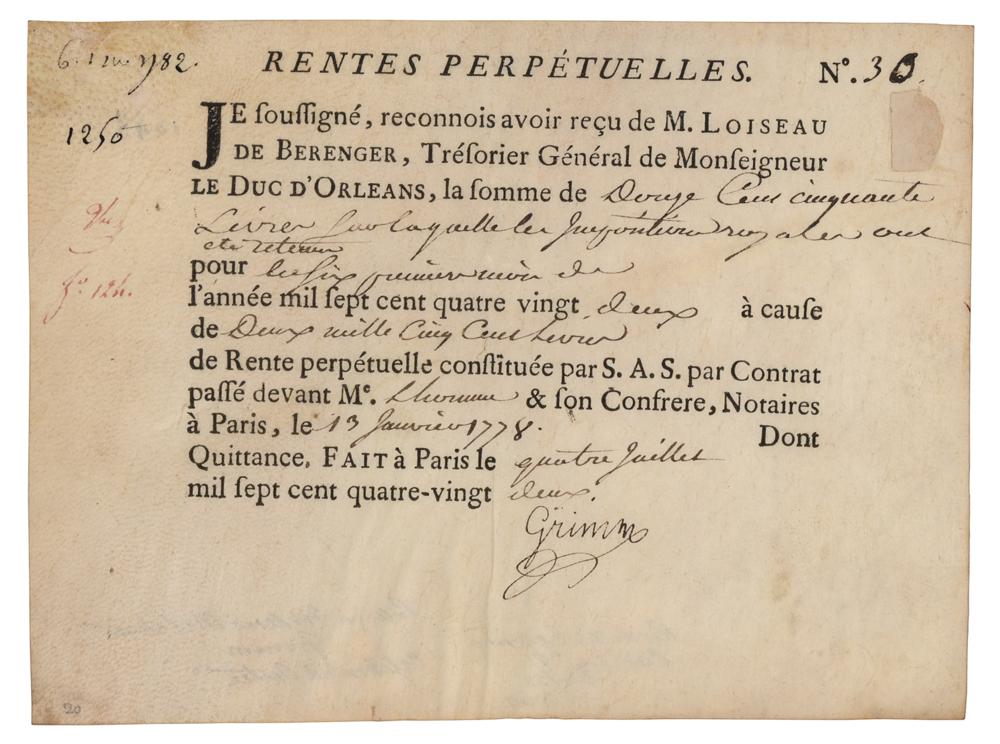 6. 1782.
RENTES PERPÉTUELLES. Nº. 30.
1250
JE ſouſſigné, reconnois avoir reçu de M. LOISEAU
DE BERENGER, Tréſorier Général de Monſeigneur
LE DUC D'ORLEANS, la ſomme de Douze Cens cinquante
Livres Sur laquelle les Impositions royales ont
été retenues
pour les six premiers mois de
l'année mil ſept cent quatre vingt deux à cauſe
de Deux mille Cinq Cens Livres
de Rente perpétuelle conſtituée par S. A. S. par Contrat
paſſé devant Mᵉ. Lhomme & ſon Confrere, Notaires
à Paris, le 13 Janvier 1778. Dont
Quittance, FAIT à Paris le quatre Juillet
mil ſept cent quatre-vingt deux.
Grimm
20